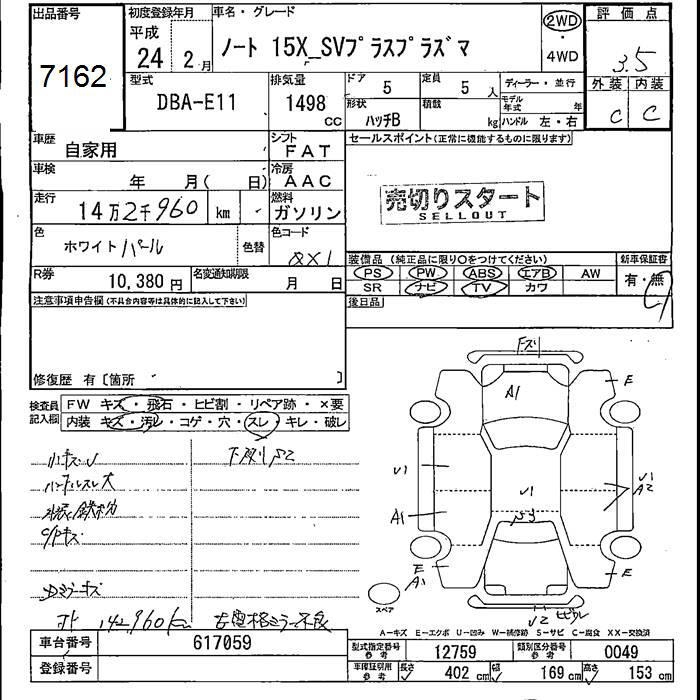 出品番号 初度登録年月 車名・グレード 評価点
7162 平成 24年 2月 ノート 15X_SVプラスプラズマ 2WD・4WD 3.5
型式 DBA-E11 排気量 1498 cc ドア 5 定員 5人 ディーラー・並行 外装 内装
形状 ハッチB 積載 kg モデル年式 年 ハンドル 左・右 C C
車歴 自家用 シフト FAT セールスポイント(正常に機能するものに限ります)
車検 年 月( 日) 冷房 AAC
走行 14万2千960 km 燃料 ガソリン
売切りスタート
SELLOUT
色 ホワイトパール 色替 色コード QX1
装備品(純正品に限り○をつけてください) 新車保証書
PS PW ABS エアB AW 有・無
SR ナビ TV カワ
R券 10,380円 名変通知期限 月 日
後日品
注意事項申告欄(不具合内容等は具体的に記入して下さい)
修復歴 有〔箇所 〕
検査員記入欄 FW キズ・飛石・ヒビ割・リペア跡・×要
内装 キズ・汚レ・コゲ・穴・スレ・キレ・破レ
ハンドルスレ大
C/Pキズ
Dミラーキズ
142,960km
右電格ミラー不良
A1
E
U1
U1
U1
A2
A1
E
A1
E
U2
スペア
A-キズ E-エクボ U-凹み W-補修跡 S-サビ C-腐食 XX-交換済
車台番号 617059
登録番号
型式指定番号 参考 12759 類別区分番号 参考 0049
車庫証引用 参考 長さ 402 cm 幅 169 cm 高さ 153 cm